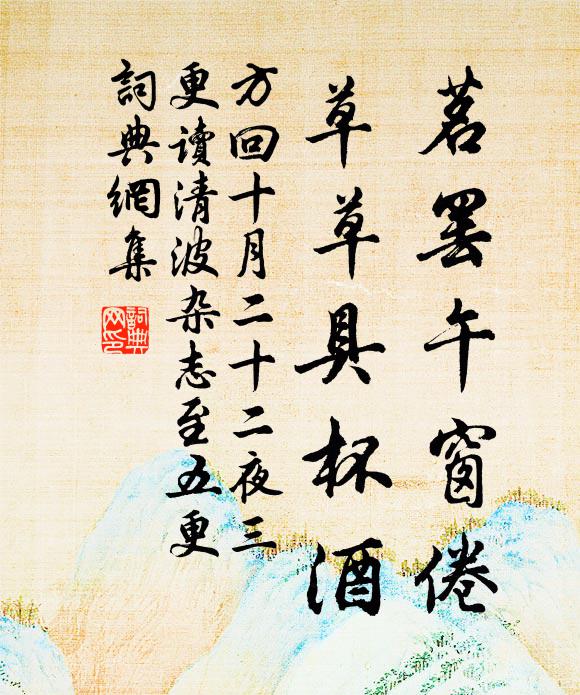 茗罷午窗倦
草草具杯酒
方回十月二十二夜三
更讀清波杂志至五更
詞典網集
詞典
网印